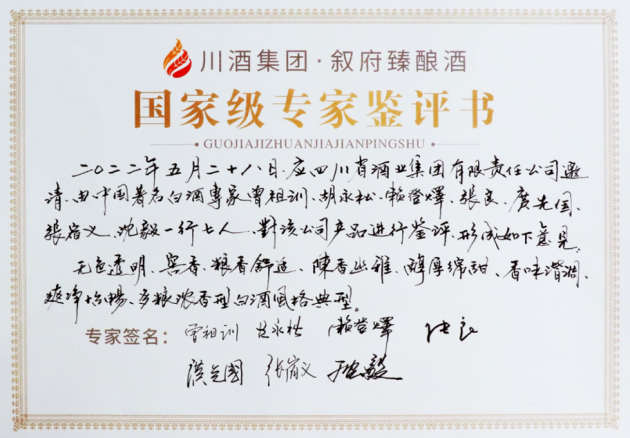 川酒集团·叙府臻酿酒
国家级专家鉴评书
GUOJIAJIZHUANJIAJIANPINGSHU
二〇二二年五月二十八日,应四川省酒业集团有限责任公司邀
请,由中国著名白酒專家曾祖训、胡永松、赖登燡、张良、廣先国、
張宿义、沈毅一行七人,對該公司产品进行鉴评,形成如下意见:
无色透明、窖香、粮香舒适、陳香幽雅、醇厚绵甜、香味谐调、
爽净怡畅、多粮浓香型白酒風格典型。
专家签名: 曾祖训 胡永松 赖登燡 张良
張宿义 沈毅